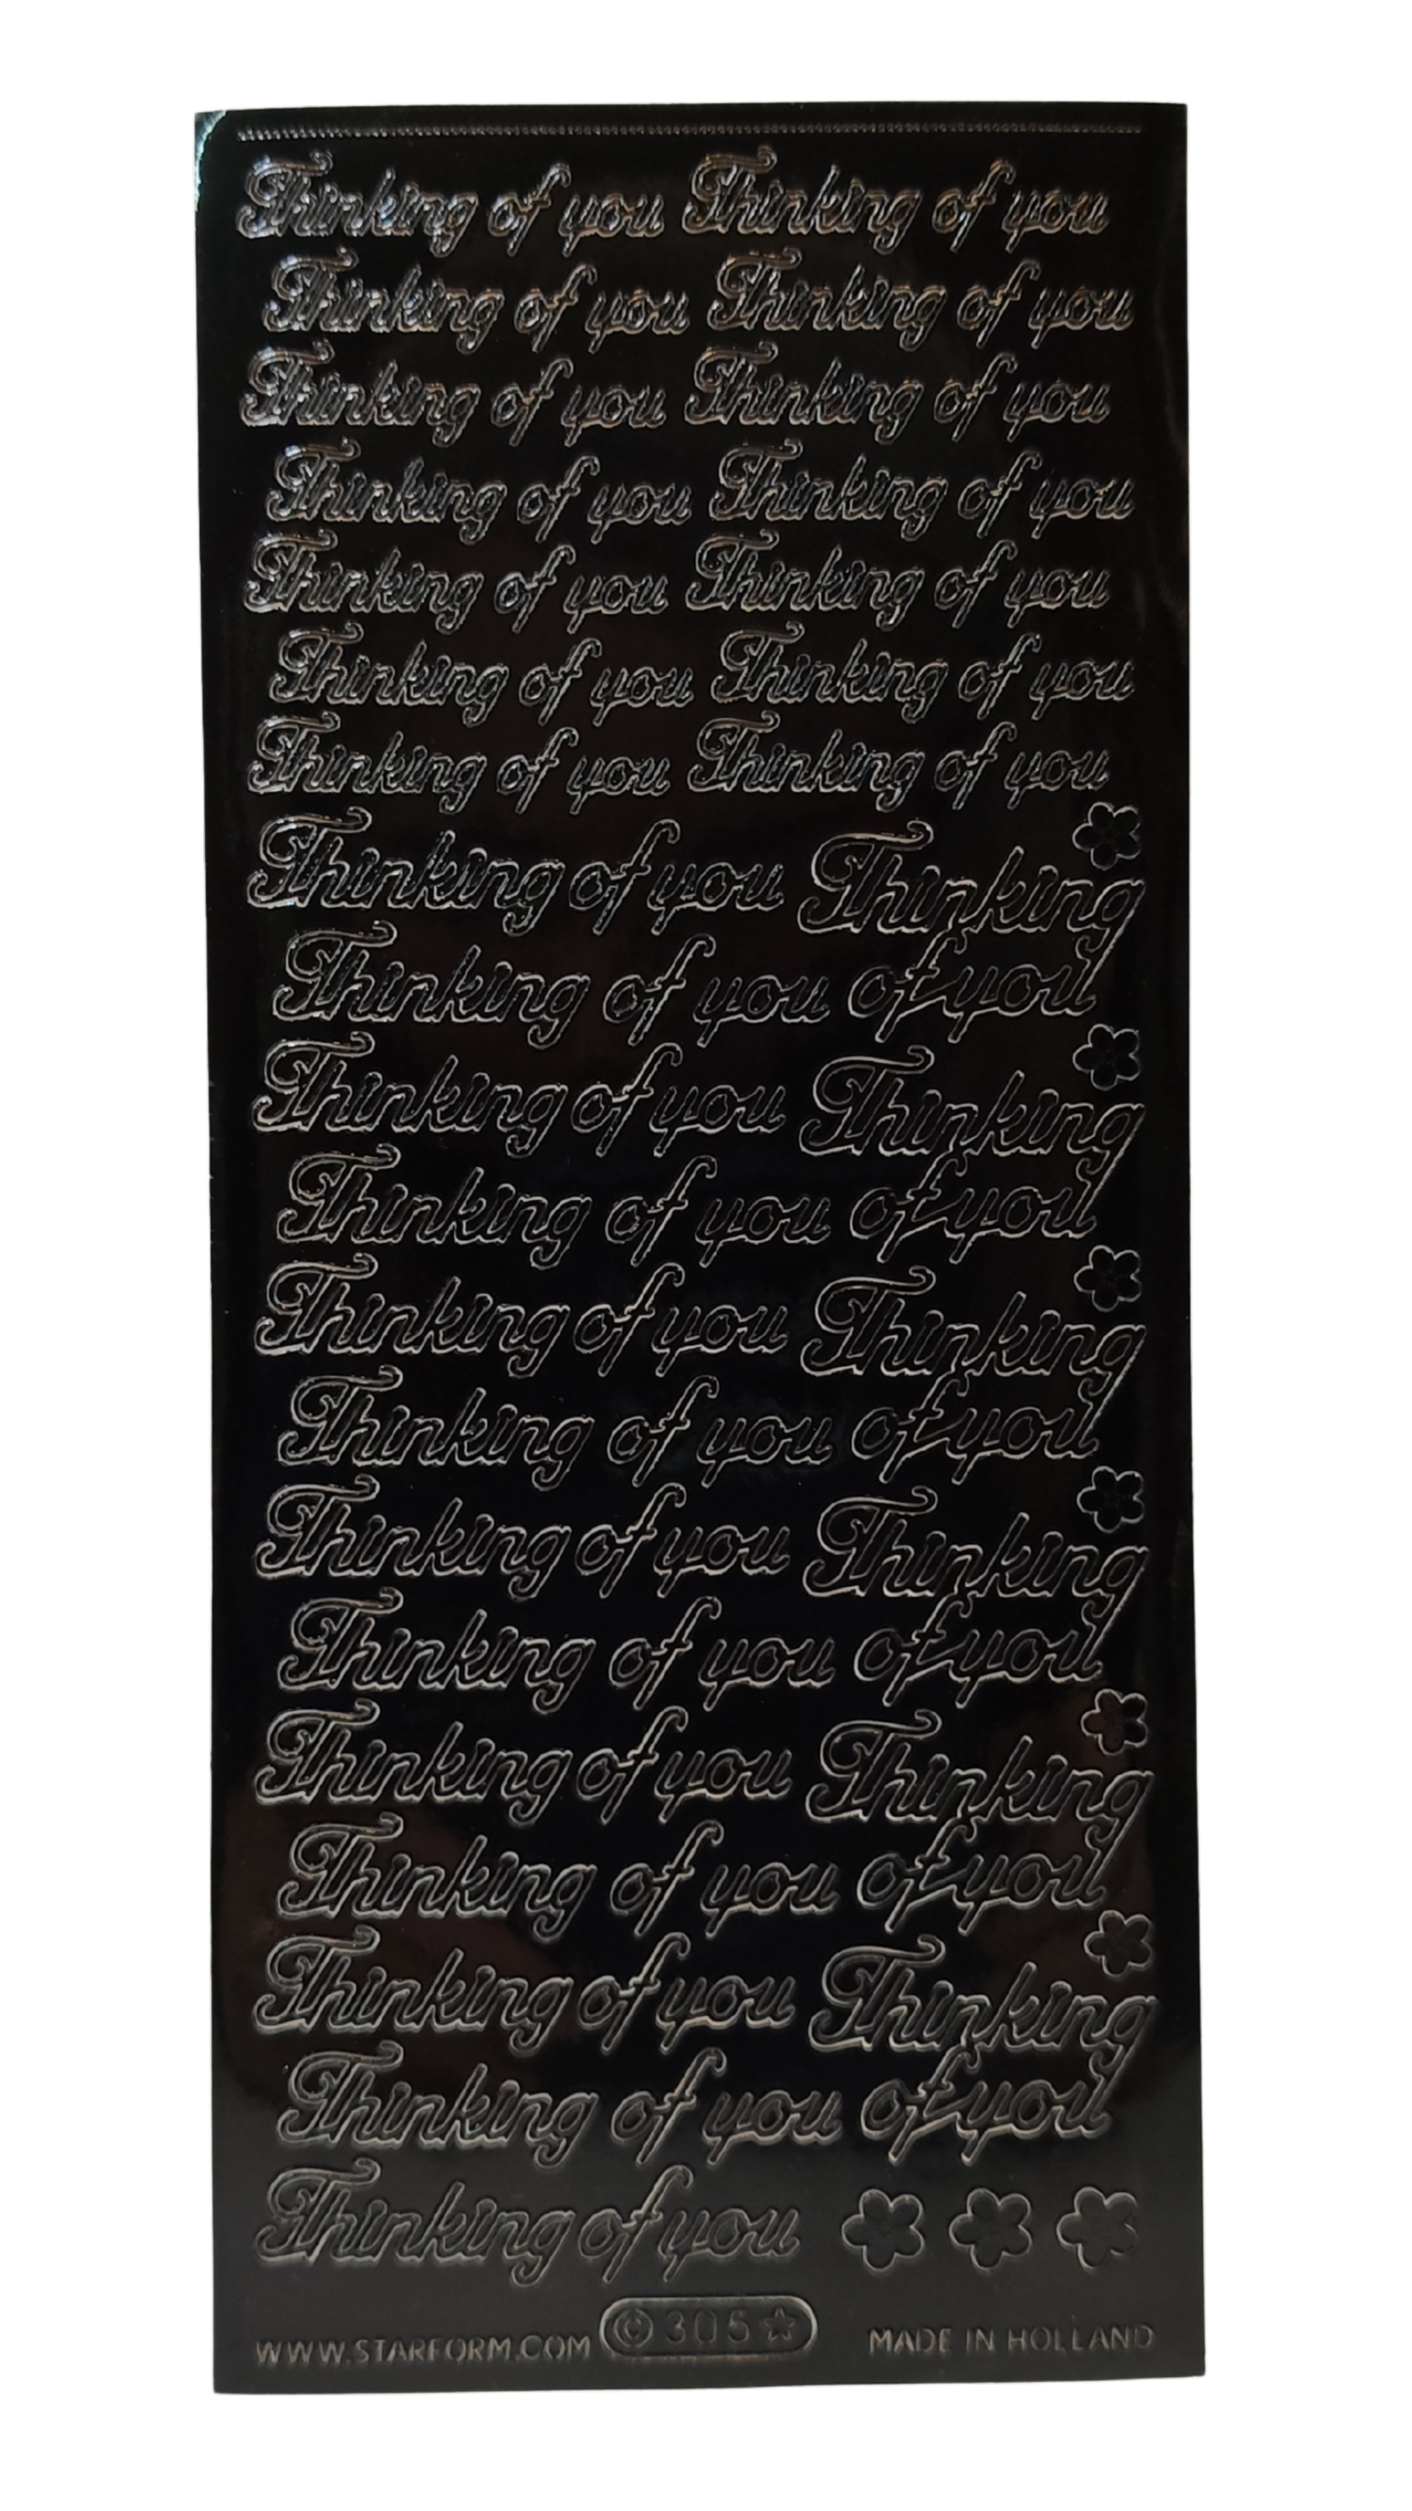 Thinking of you Thinking of you
Thinking of you Thinking of you
Thinking of you Thinking of you
Thinking of you Thinking of you
Thinking of you Thinking of you
Thinking of you Thinking of you
Thinking of you Thinking of you
Thinking of you Thinking
Thinking of you of you
Thinking of you Thinking
Thinking of you of you
Thinking of you Thinking
Thinking of you of you
Thinking of you Thinking
Thinking of you of you
Thinking of you Thinking
Thinking of you of you
Thinking of you Thinking
Thinking of you of you
Thinking of you
WWW.STARFORM.COM © 305 ☆ MADE IN HOLLAND